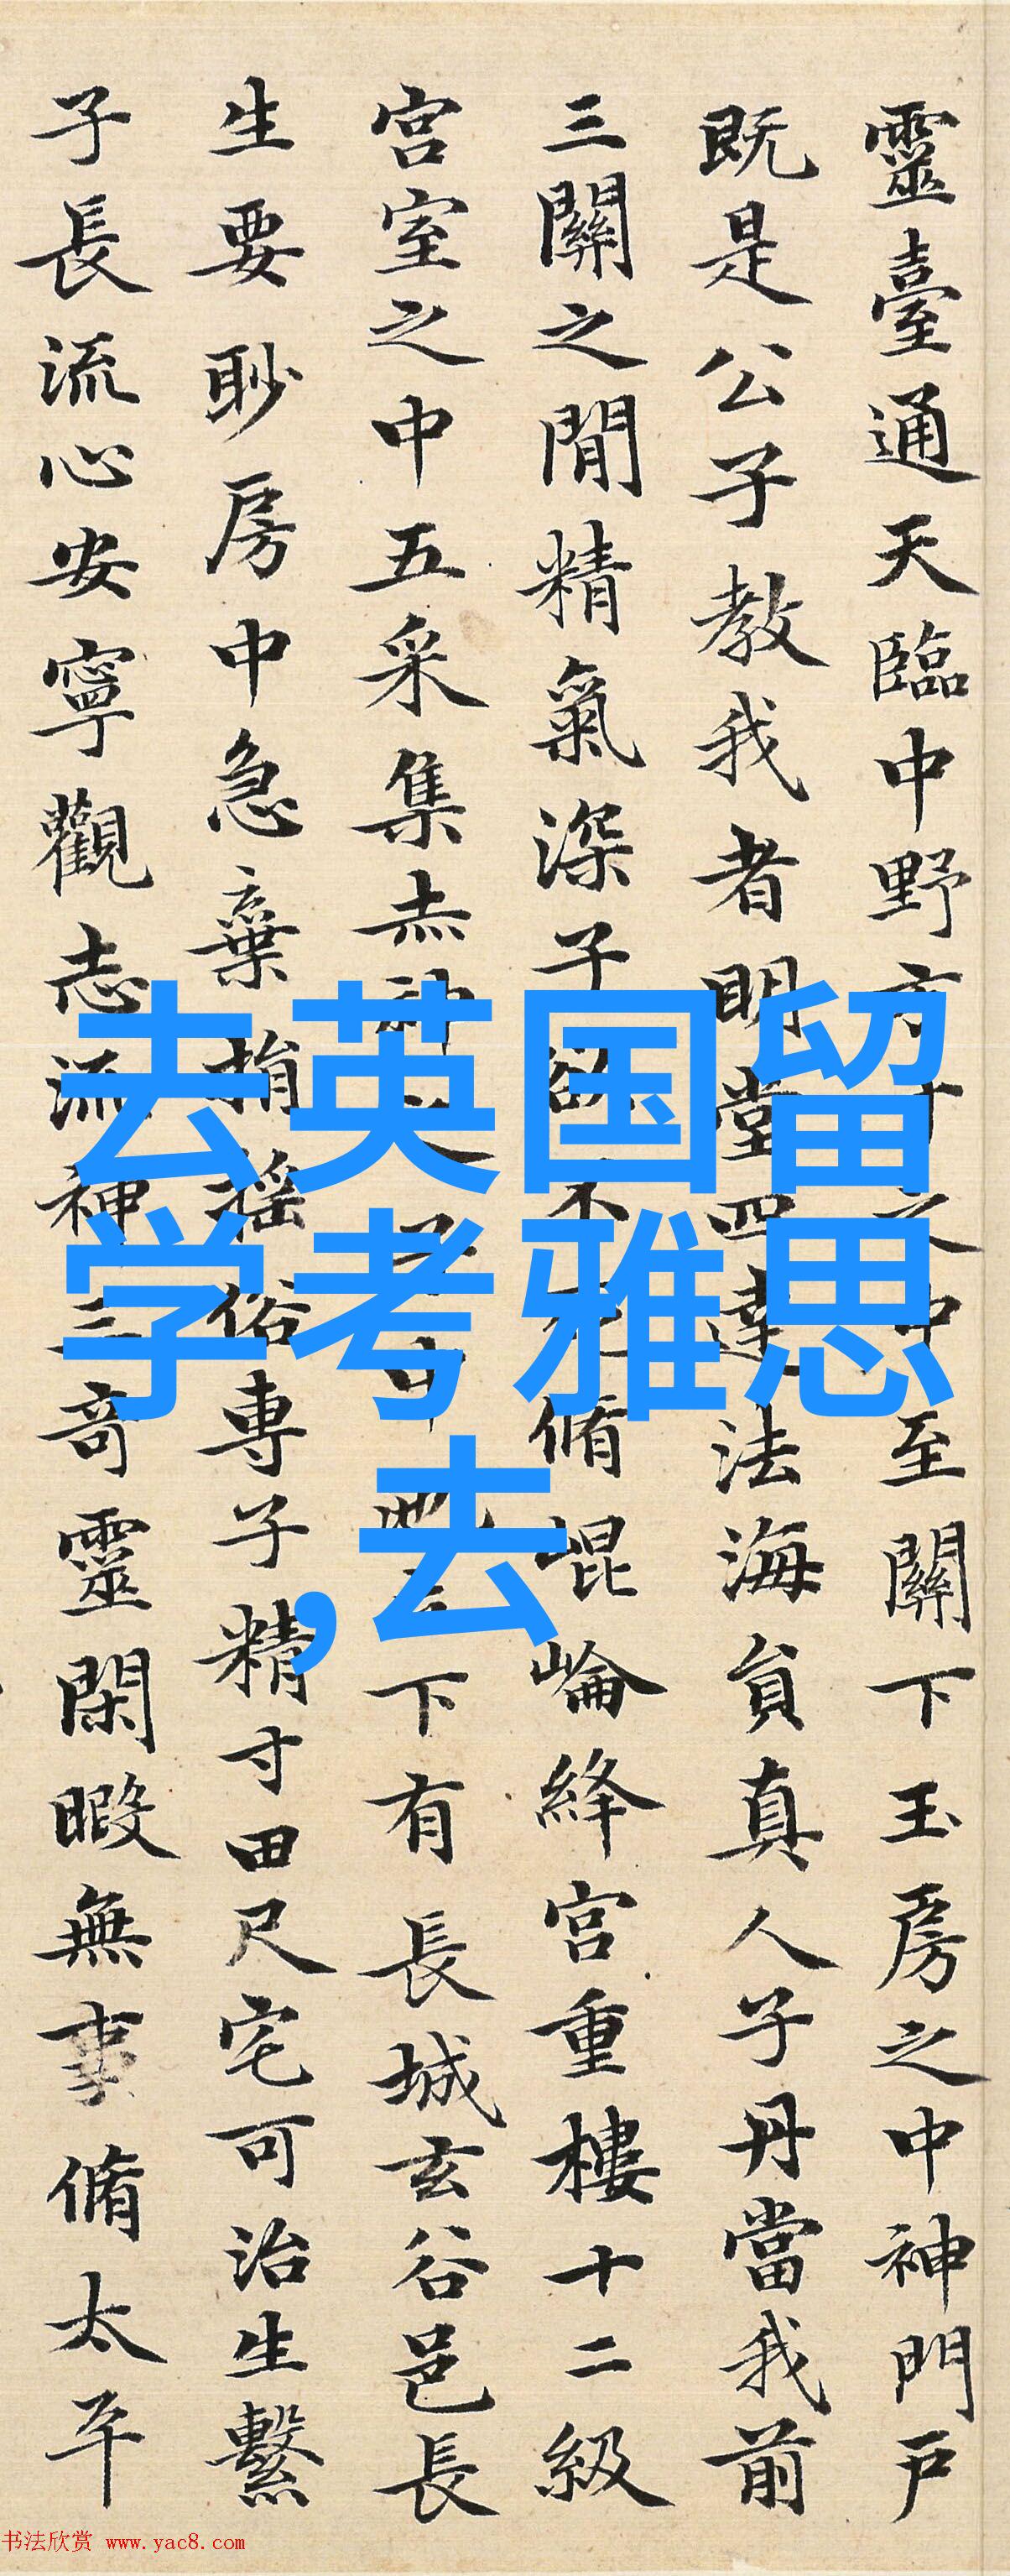 靈臺通天臨中野方寸之中至關下玉房之中神門戶
既是公子教我者明堂四達法海員真人子丹當我前
三關之間精氣深子欲不死脩崐崘絳宮重樓十二級
宮室之中五采集赤神之子中池立下有長城玄谷邑長
生要眇房中急棄捐摇俗專子精寸田尺宅可治生繫
子長流心安寧觀志流神三奇靈閑暇無事脩太平
去英国留
学考雅思
,去
书法欣赏 www.yac8.com